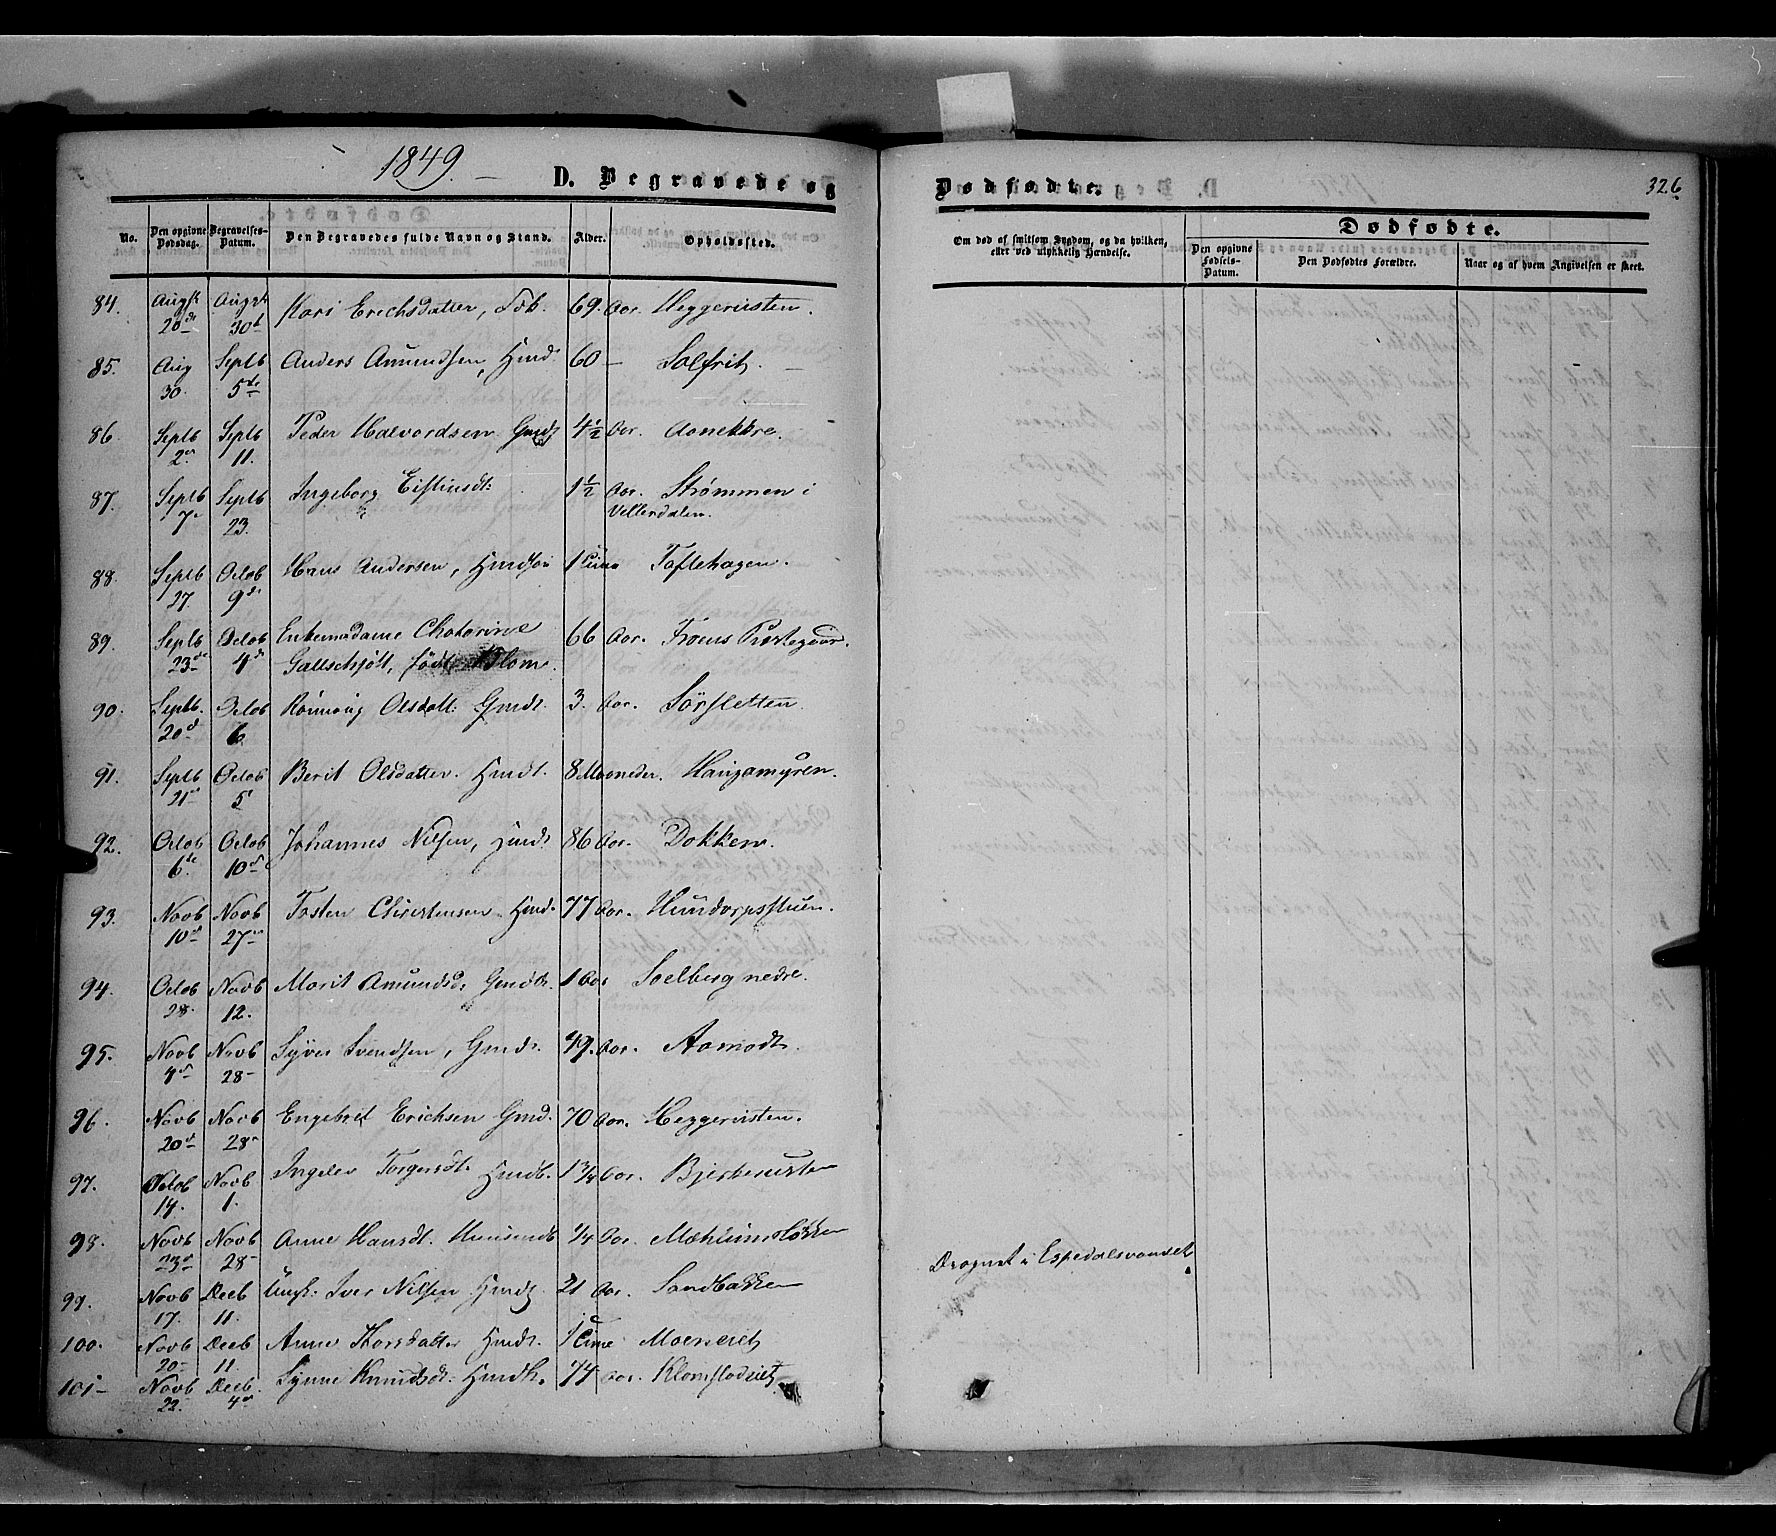 1849. —
D. Begravede og
Dødfødte.
326
Dødfødte.
No.
Den opgivne Dødsdag.
Begravelses-Datum.
Den Begravedes fulde Navn og Stand.
Alder.
Opholdssted.
Om død af smitsom Sygdom, og da hvilken, eller ved ulykkelig Hændelse.
Den opgivne Fødsels-Datum.
Den Dødfødtes Forældre.
Naar og af hvem Angivelsen er skeet.
84. Augst 20de Augst 30t Kari Erichsdatter, Fdb. 69. Aar. Heggerusten.
85. Aug 30. Septb 5te Anders Amundsen, Hmd 60 — Solfrit. —
86. Septb 2en Septb 11. Peder Halvordsen Gmds 4½ Aar. Aanekkre.
87. Septb 7– Septb 23. Ingeborg Eistinsdt: 1½ Aar. Strømmen i
Vellerdalen.
88. Septb 27. Octob 9de Hans Andersen, Hmdsøn 1 Time Toftehagen.
89. Septb 23de Octob 4de Enkemadame Chatarine 66 Aar. Froens Præstegaar.
Gallschjøtt, født Blom.
90. Septb. 20d Octob 6. Rønnoug Olsdatt: Gmdt. 3. Aar. Sörfletten
91. Septb 21en Octob 5 Berit Olsdatter. Hmdt. 8 Maaneder. Haugamyren.
92. Octob 6te Octob 10de Johannes Nilsen, Hmds 86 Aar. Dokken.
93. Novb 10d Novb 27en Tosten Christensen Hmd. 77 Aar. Hundorpsstuen.
94. Octob 28. Novb 12. Marit Amundsd. Gmdt. 1 Aar Soelberg nedre.
95. Novb 4d Novb 28– Syver Svendsen, Gmdt. 49. Aar. Aamodt.
96. Novb 20d Novb 28– Engebret Erichsen Gmd. 70 Aar. Heggerusten.
97. Octob 14. Novb 1. Ingelev Torgersdt. Hmdb. 1¾ Aar. Bjerkerusten
98. Novb 23d Novb 28– Anne Hansdt. Huusmdb ¼ Aar. Mæhlumsløkken
99. Novb 17. Decb 11. Ungk. Iver Nilsen Hmds. 21 Aar. Sandbakken
Drognet i Espedalsvandet
100. Novb 20– Decb 11. Anne Thorsdatter Hmdt. 1 Time Moeneiet
101– Novb 22. Decb. 4en Synne Knudsdt. Hmdk. 74 Aar. Klomstadeiet